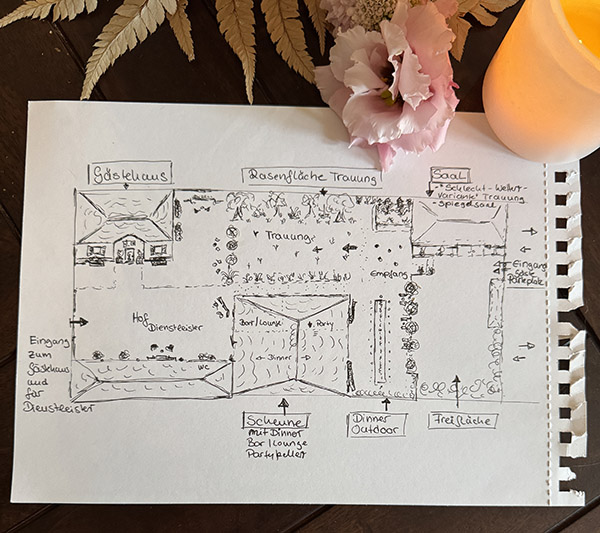 Gästehaus
Rasenfläche Trauung
Saal
- "Schlecht-Wetter-
Variante" Trauung
- Spiegelsaal
Trauung
Empfang
Eingang
Gäste
Parkplatz
Hof
Dienstleister
Bar/Lounge
Party
Dinner
WC
Eingang
zum
Gästehaus
und
für
Dienstleister
Scheune
mit Dinner
Bar/Lounge
Partykeller
Dinner
Outdoor
Freifläche